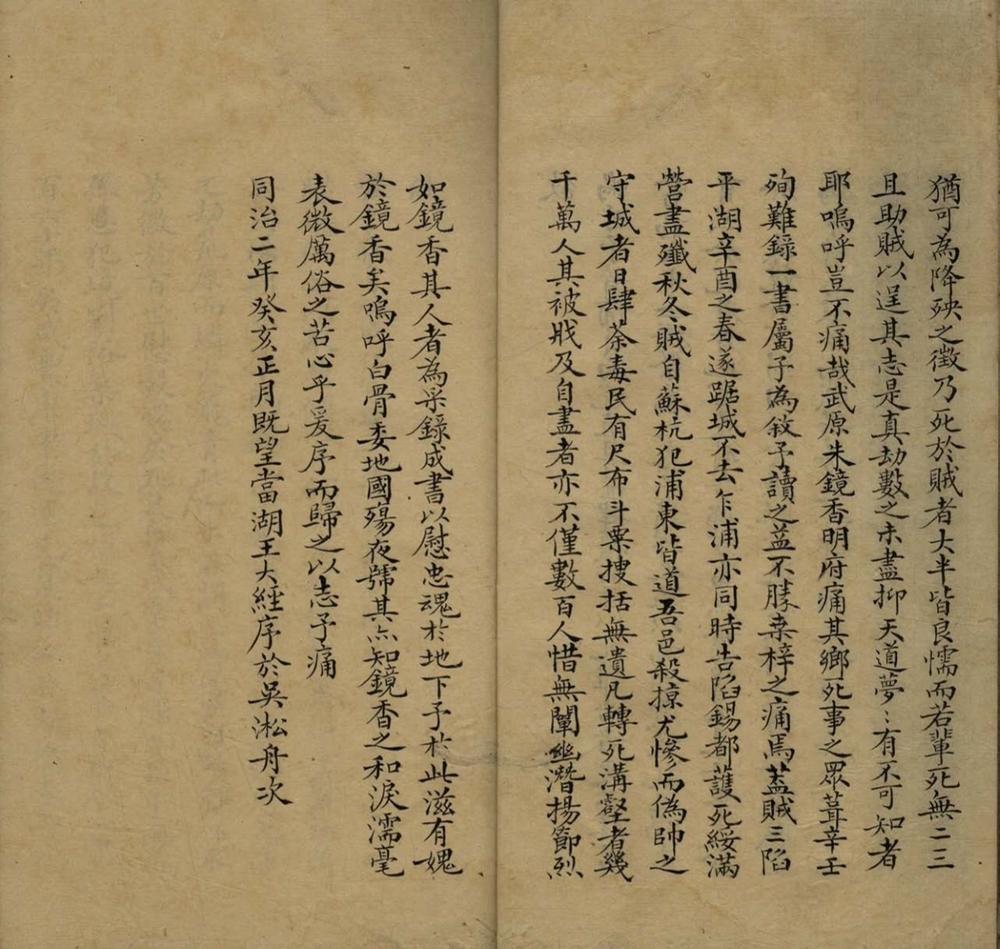 猶可為降殃之徵乃死於賊者大半皆良懦而若輩死無二三
且助賊以逞其志是真劫數之未盡抑天道夢〻有不可知者
耶嗚呼豈不痛哉武原朱鏡香明府痛其鄉死事之眾葺辛壬
殉難錄一書屬予為敘予讀之益不勝桑梓之痛焉蓋賊三陷
平湖辛酉之春遂踞城不去乍浦亦同時告陷錫都護死綏滿
營盡殲秋冬賊自蘇杭犯浦東皆道吾邑殺掠尤慘而偽帥之
守城者日肆荼毒民有尺布斗粟搜括無遺凡轉死溝壑者幾
千萬人其被戕及自盡者亦不僅數百人惜無闡幽潛揚節烈
如鏡香其人者為采錄成書以慰忠魂於地下予於此滋有媿
於鏡香矣嗚呼白骨委地國殤夜號其亦知鏡香之和淚濡毫
表微厲俗之苦心乎爰序而歸之以志予痛
同治二年癸亥正月既望當湖王大經序於吳淞舟次